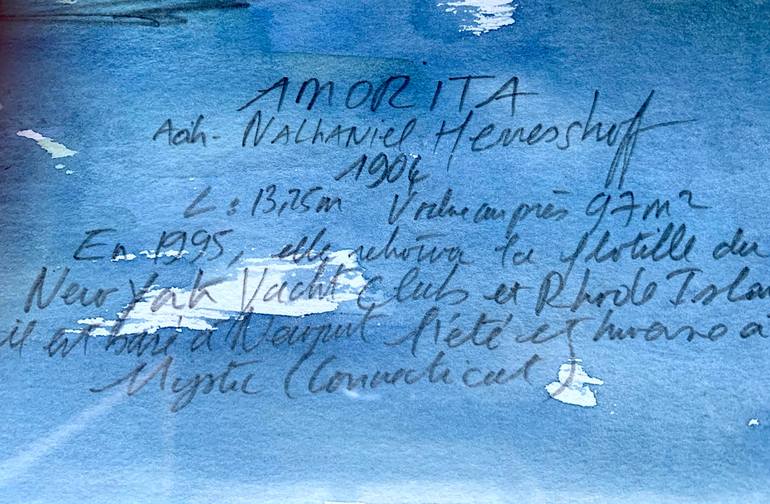 AMORITA
Arch. Nathaniel Herresshoff
1904
L : 13,25m Voilure au près 97m²
En 1995, elle retrouva la flotille du
New York Yacht Club et Rhode Isla
il est basé à Newport l'été et hiverne à
Mystic (Connecticut)